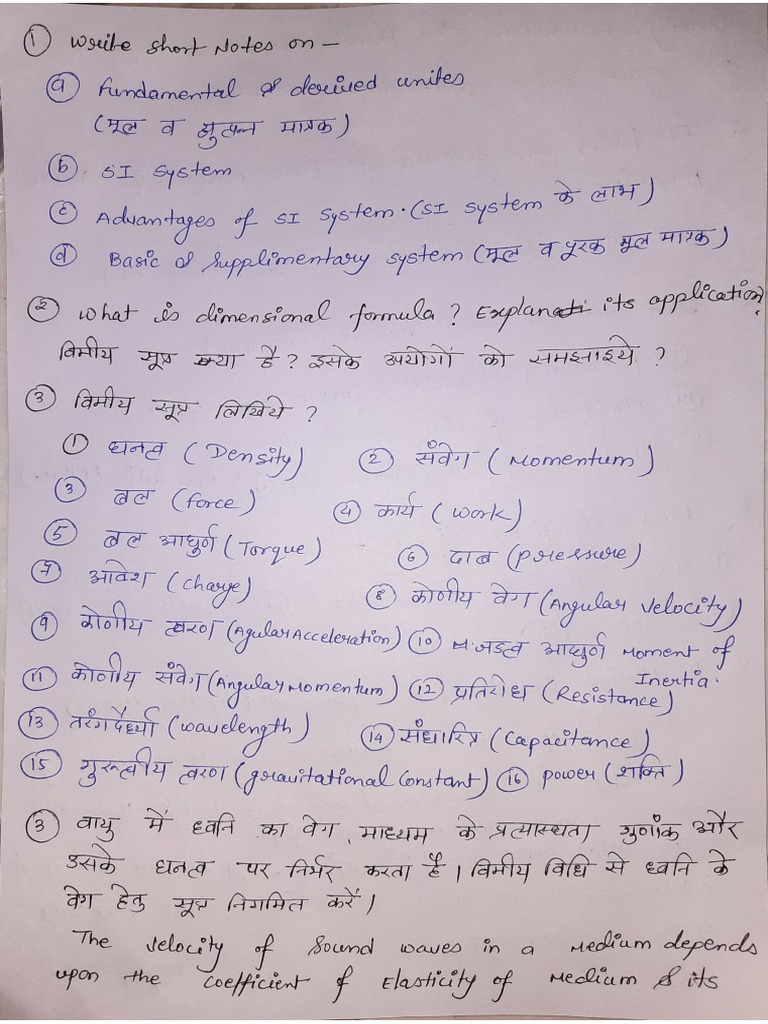 ① Write short Notes on –
ⓐ fundamental & derived unites
(मूल व व्युत्पन्न मात्रक)
ⓑ SI System
ⓒ Advantages of SI System. (SI System के लाभ)
ⓓ Basic & Supplimentary system (मूल व पूरक मूल मात्रक)
② What is dimensional formula? Explan its application?
विमीय सूत्र क्या है? इसके उपयोगों को समझाइये?
③ विमीय सूत्र लिखिये?
① घनत्व (Density) ② संवेग (Momentum)
③ बल (force) ④ कार्य (work)
⑤ बल आघुर्ण (Torque) ⑥ दाब (pressure)
⑦ आवेश (Charge) ⑧ कोणीय वेग (Angular Velocity)
⑨ कोणीय त्वरण (Agular Acceleration) ⑩ जड़त्व आघुर्ण Moment of Inertia.
⑪ कोणीय संवेग (Angular Momentum) ⑫ प्रतिरोध (Resistance)
⑬ तरंगदैर्ध्य (wavelength) ⑭ संधारित्र (Capacitance)
⑮ गुरूत्वीय त्वरण (gravitational Constant) ⑯ power (शक्ति)
③ वायु में ध्वनि का वेग, माध्यम के प्रत्यास्थता गुणांक और
उसके घनत्व पर निर्भर करता है। विमीय विधि से ध्वनि के
वेग हेतु सूत्र निगमित करें।
The Velocity of Sound waves in a Medium depends
upon the Coefficient of Elasticity of Medium & its